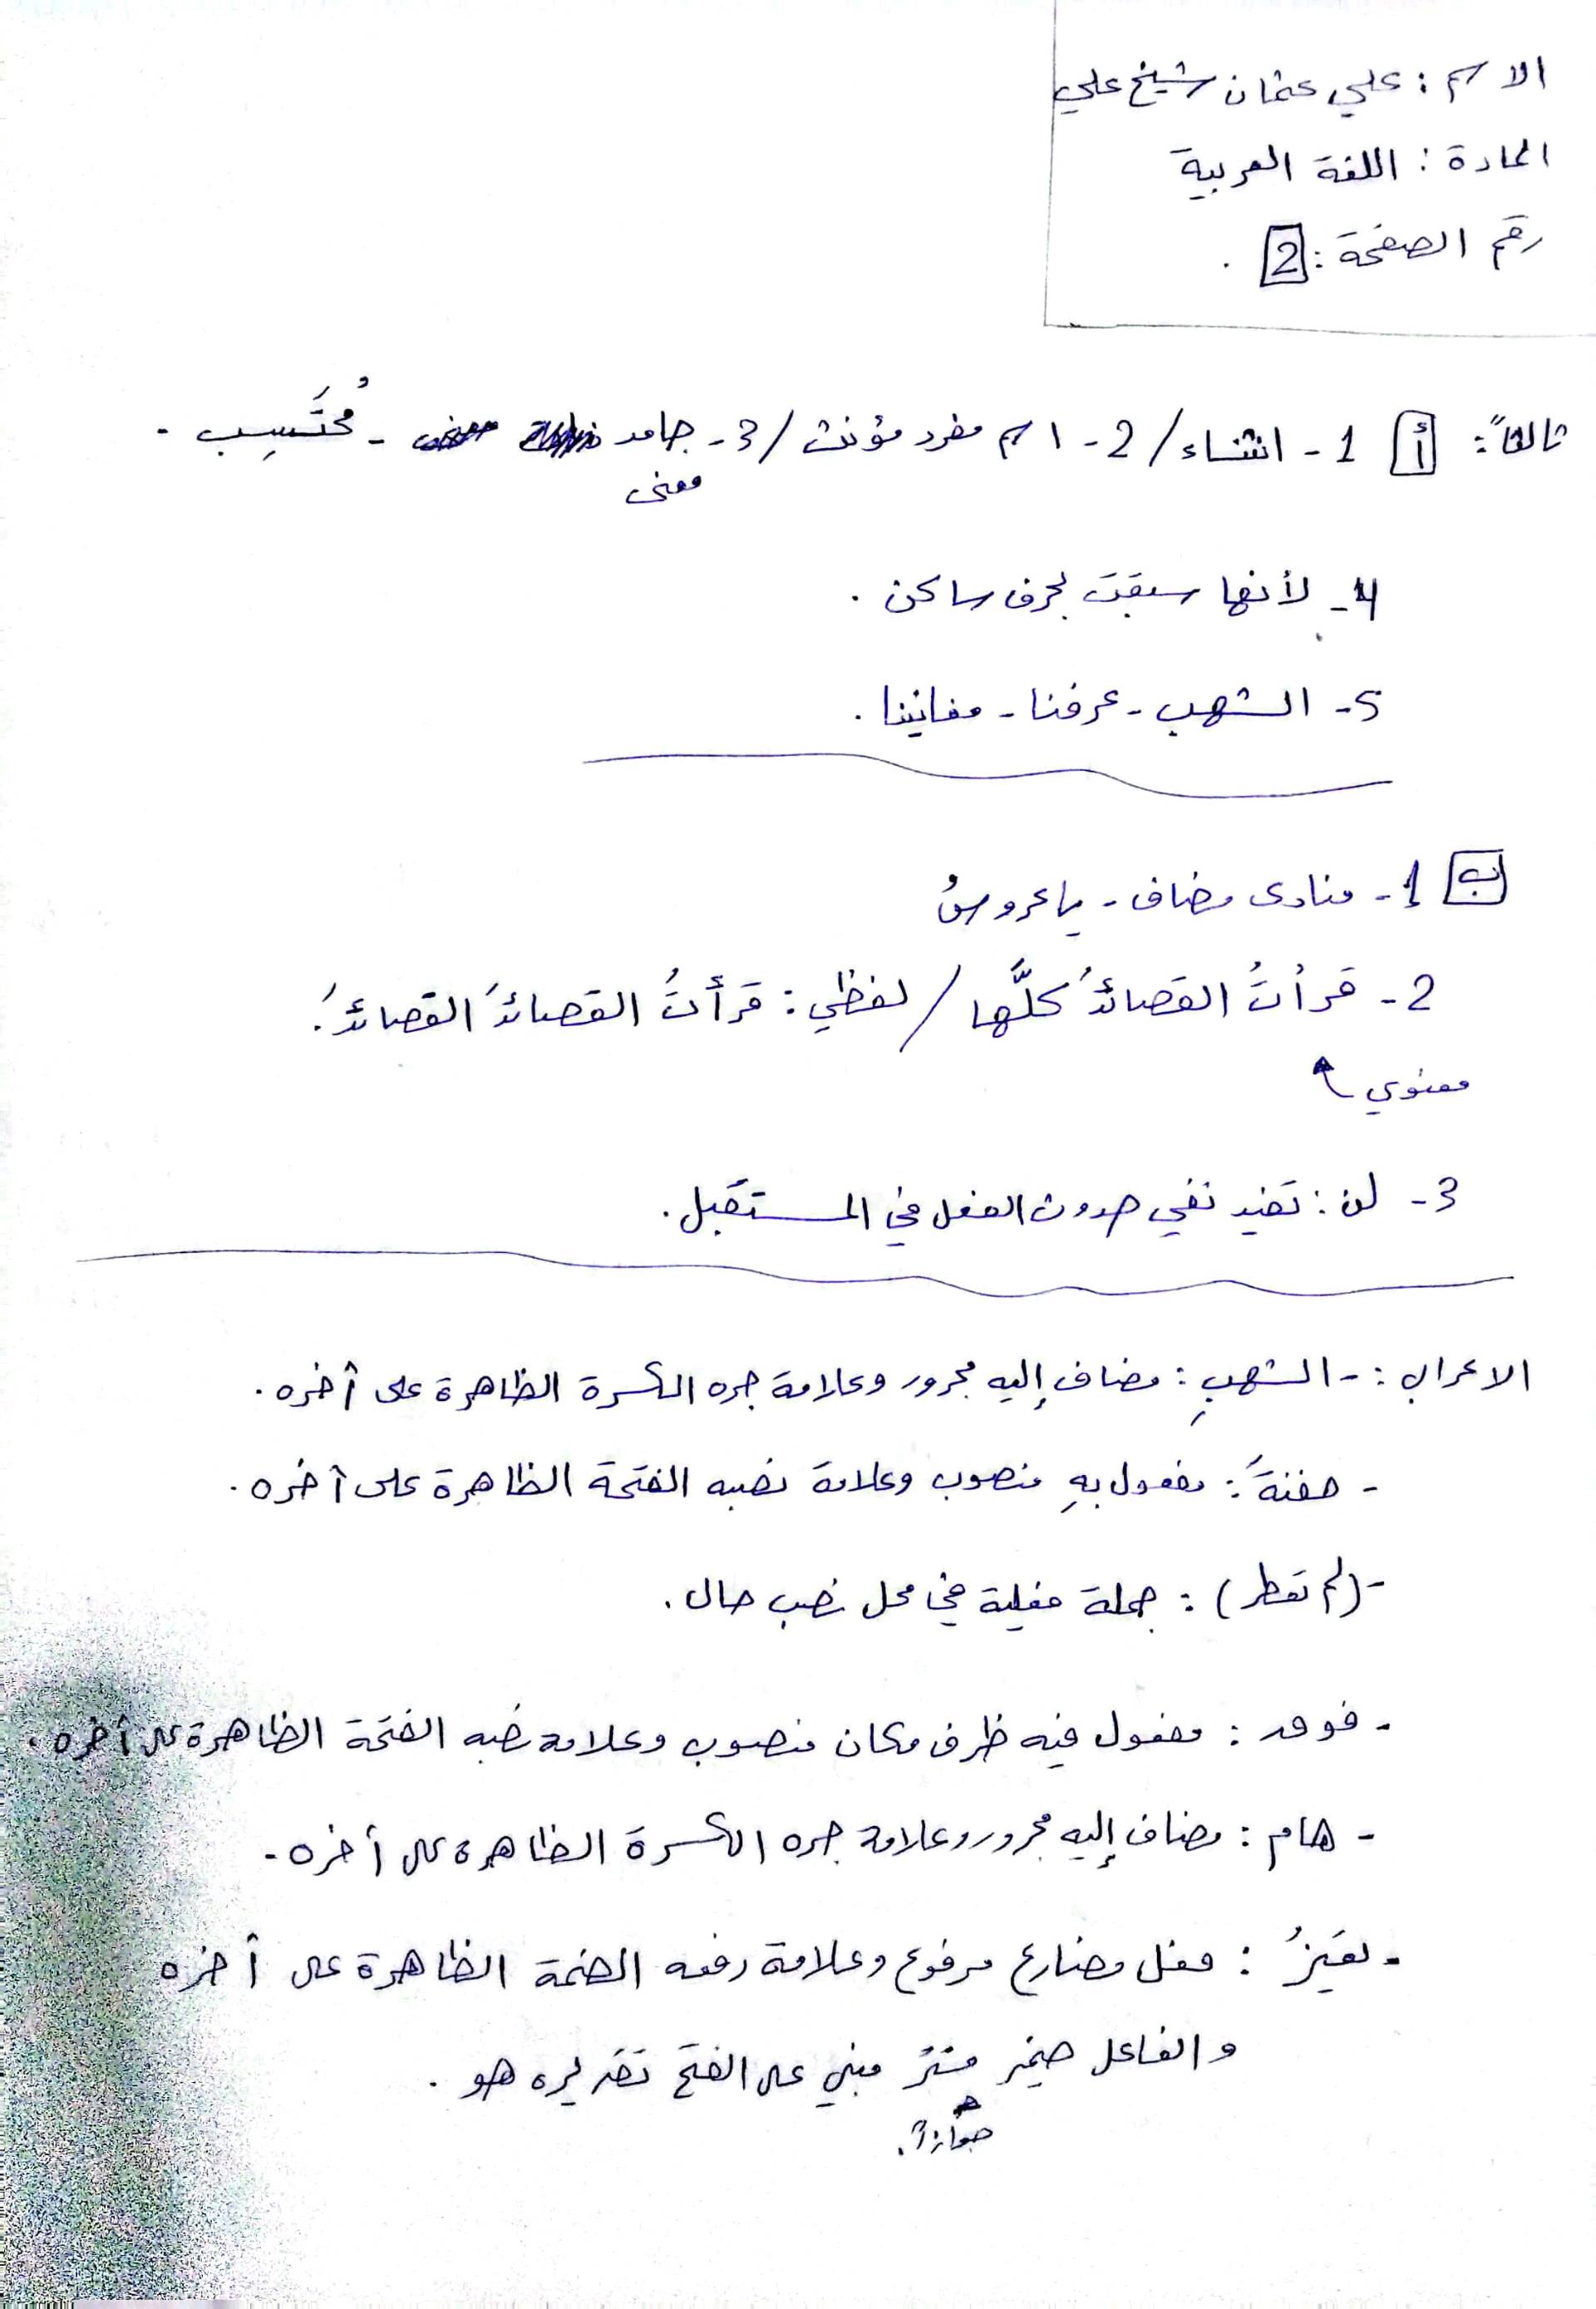 الاسم : علي عثمان شيخ علي
المادة : اللغة العربية
رقم الصفحة : 2 .
ثالثاً : أ 1 - انشاء / 2 - اسم مفرد مؤنث / 3 - جامد معنى - مُحتَسِب .
4 - لأنها سبقت بحرف ساكن .
5 - الشهب - عرفنا - مغانينا .
ب 1 - منادى مضاف - يا عروسُ
2 - قرأتُ القصائدَ كلَّها / لفظي : قرأتُ القصائدَ القصائدَ .
معنوي
3 - لن : تفيد نفي حدوث الفعل في المستقبل .
الاعراب : - الشهبِ : مضاف إليه مجرور وعلامة جره الكسرة الظاهرة على آخره .
- حفنةً : مفعول بهِ منصوب وعلامة نصبه الفتحة الظاهرة على آخره .
- (لم تعطر) : جملة فعلية في محل نصب حال .
- فوق : مفعول فيه ظرف مكان منصوب وعلامة نصبه الفتحة الظاهرة على آخره .
- هام : مضاف إليه مجرور وعلامة جره الكسرة الظاهرة على آخره .
- : فعل مضارع مرفوع وعلامة رفعه الضمة الظاهرة على آخره
والفاعل ضمير مستتر مبني على الفتح تقديره هو .
جوازاً .